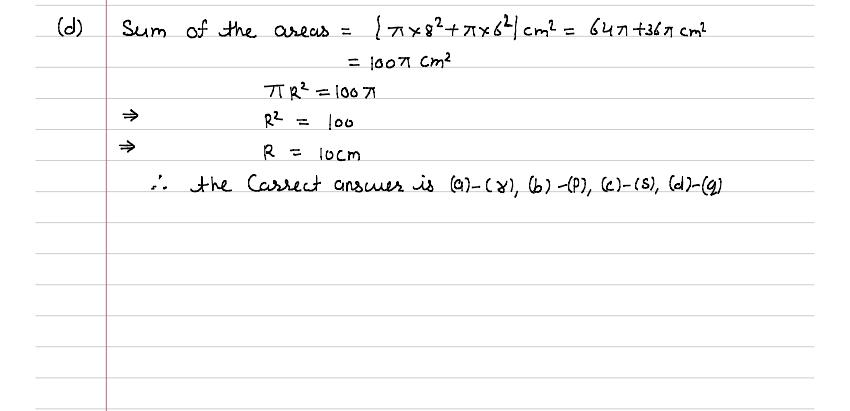 (d) Sum of the areas = {π×8²+π×6²} cm² = 64π+36π cm²
= 100π cm²
πR² = 100π
⇒ R² = 100
⇒ R = 10cm
∴ the Correct answer is (a)-(r), (b)-(p), (c)-(s), (d)-(q)